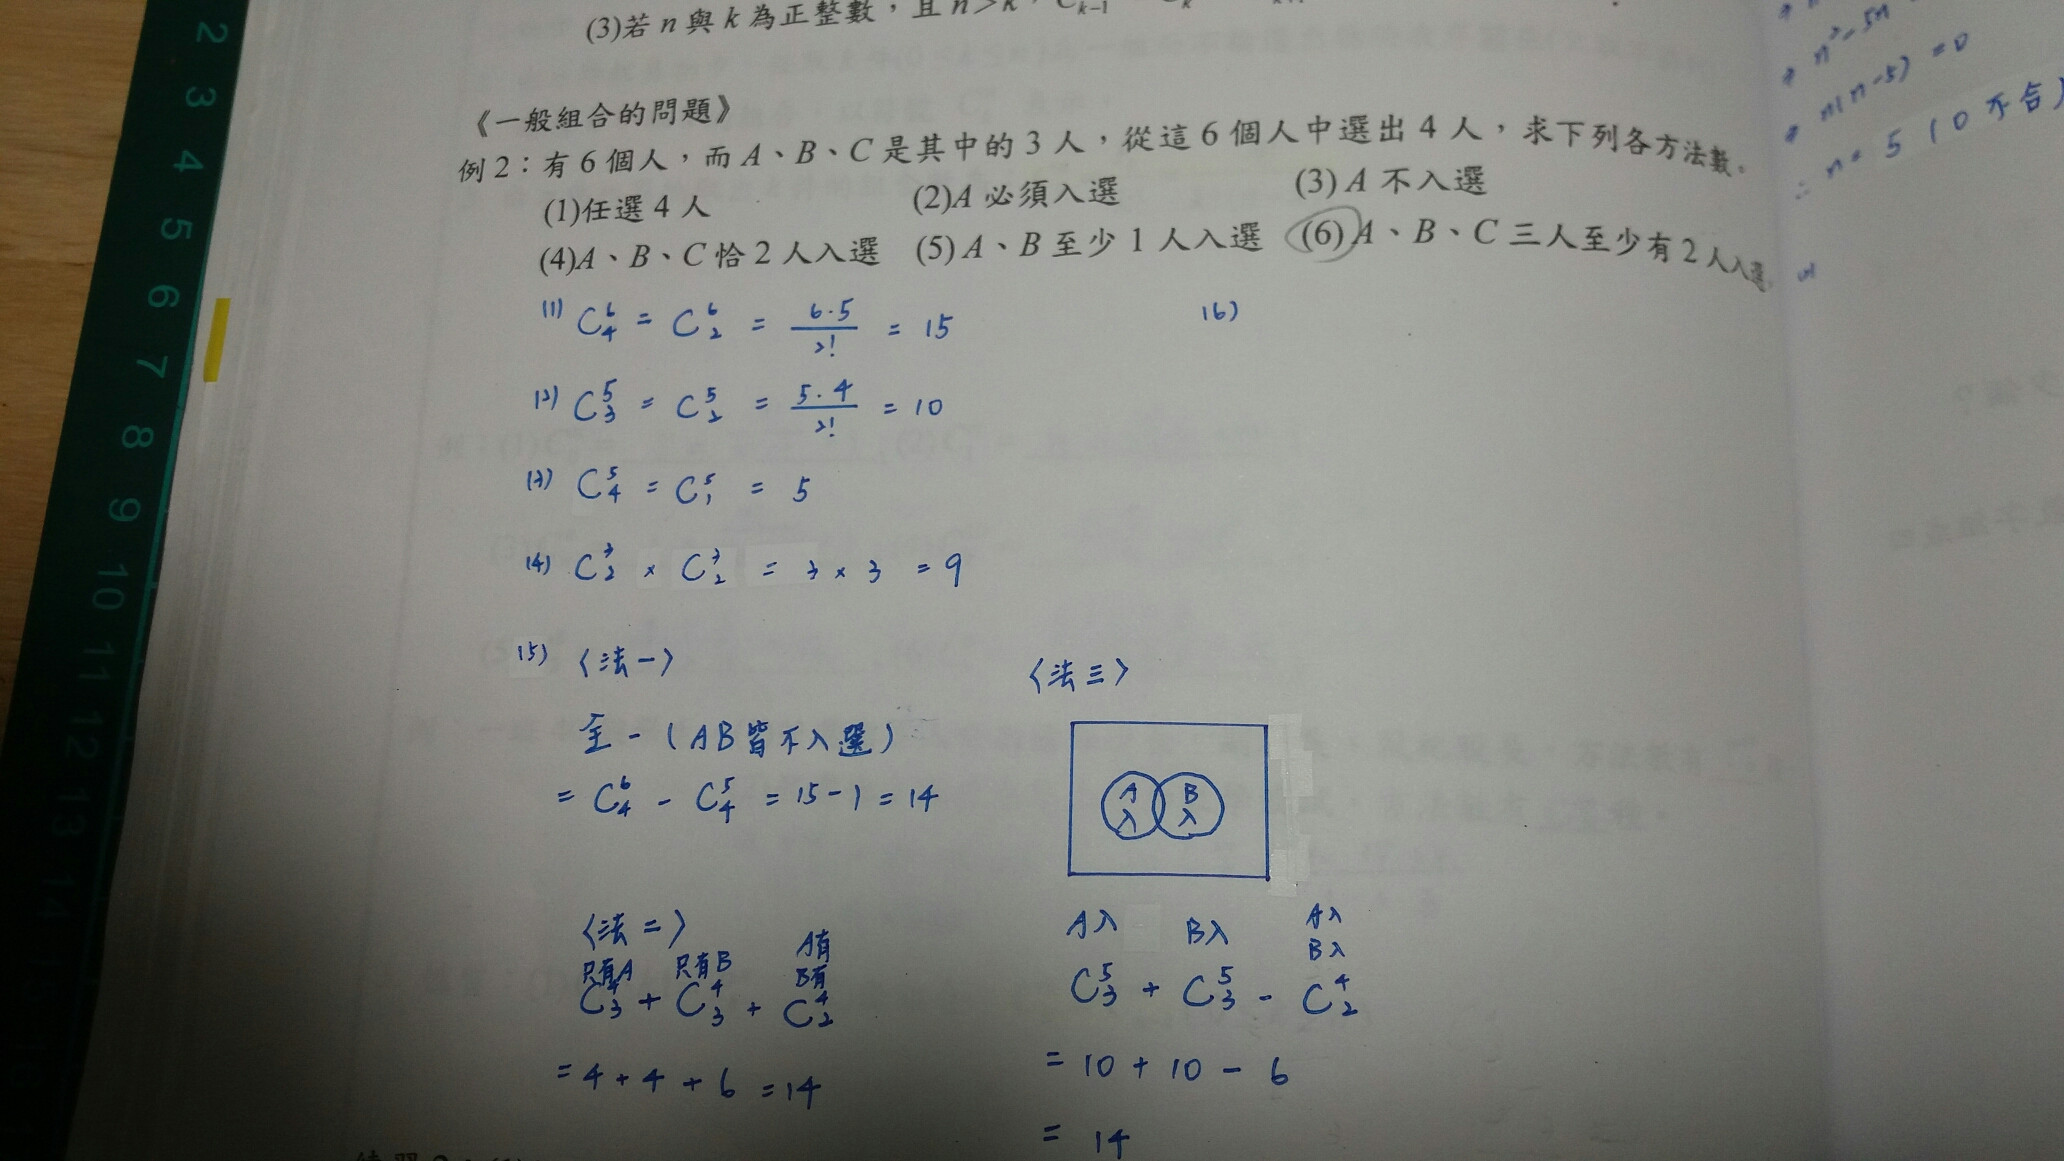 (3)若 n 與 k 為正整數，且 n > k，
《一般組合的問題》
例 2：有 6 個人，而 A、B、C 是其中的 3 人，從這 6 個人中選出 4 人，求下列各方法數。
(1)任選 4 人 (2)A 必須入選 (3) A 不入選
(4)A、B、C 恰 2 人入選 (5) A、B 至少 1 人入選 (6) A、B、C 三人至少有 2 人入選
(1) C⁶₄ = C⁶₂ = 6·5/2! = 15
(2) C⁵₃ = C⁵₂ = 5·4/2! = 10
(3) C⁵₄ = C⁵₁ = 5
(4) C³₂ × C³₂ = 3 × 3 = 9
(5) 〈法一〉
全 - (AB皆不入選)
= C⁶₄ - C⁵₄ = 15 - 1 = 14
〈法二〉
只有A 只有B A有
B有
C⁴₃ + C⁴₃ + C⁴₂
= 4 + 4 + 6 = 14
〈法三〉
A B
入 入
A入 B入 A入
B入
C⁵₃ + C⁵₃ - C⁴₂
= 10 + 10 - 6
= 14
(6)
n² - 5n
n(n-5) = 0
∴ n = 5 (0 不合)
2 3 4 5 6 7 8 9 10 11 12 13 14 15 16